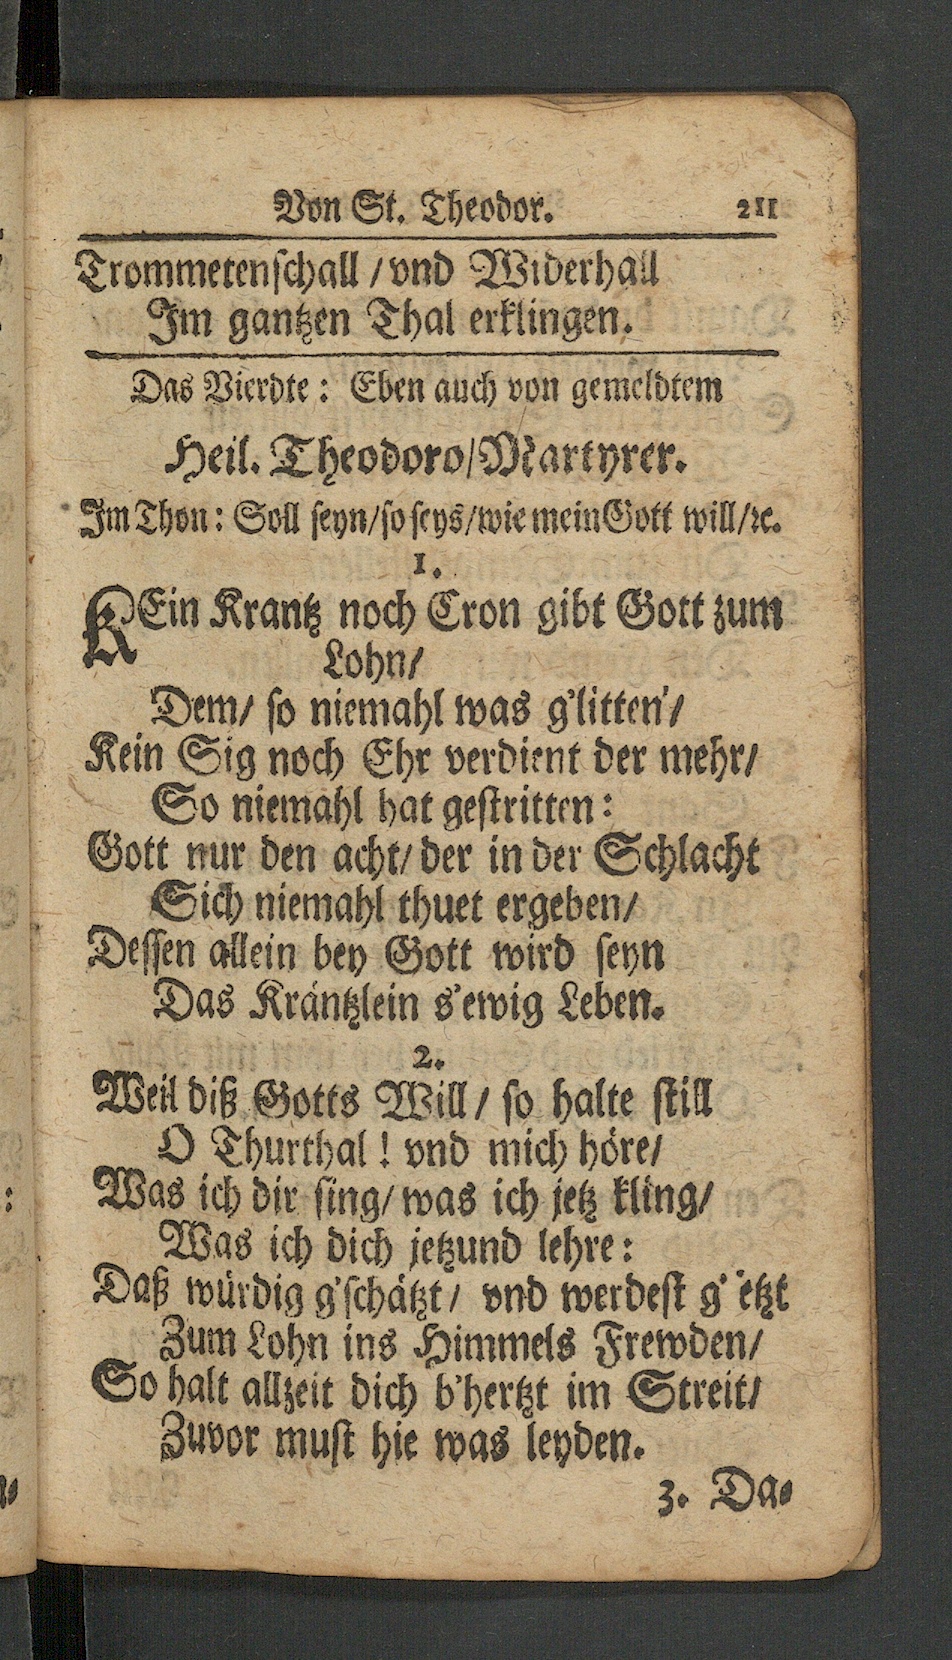 Von St. Theodor. 211
Trommetenschall / vnd Widerhall
Im gantzen Thal erklingen.
Das Vierdte: Eben auch von gemeldtem
Heil. Theodoro/Martyrer.
Im Thon: Soll seyn/so seys/wie mein Gott will/ꝛc.
1.
KEin Krantz noch Cron gibt Gott zum
Lohn/
Dem/ so niemahl was g'litten'/
Kein Sig noch Ehr verdient der mehr/
So niemahl hat gestritten:
Gott nur den acht/ der in der Schlacht
Sich niemahl thuet ergeben/
Dessen allein bey Gott wird seyn
Das Kräntzlein s'ewig Leben.
2.
Weil diß Gotts Will / so halte still
O Thurthal! vnd mich höre/
Was ich dir sing/ was ich jetz kling/
Was ich dich jetzund lehre:
Daß würdig g'schätzt / vnd werdest g' etzt
Zum Lohn ins Himmels Frewden/
So halt allzeit dich b'hertzt im Streit/
Zuvor must hie was leyden.
3. Da-